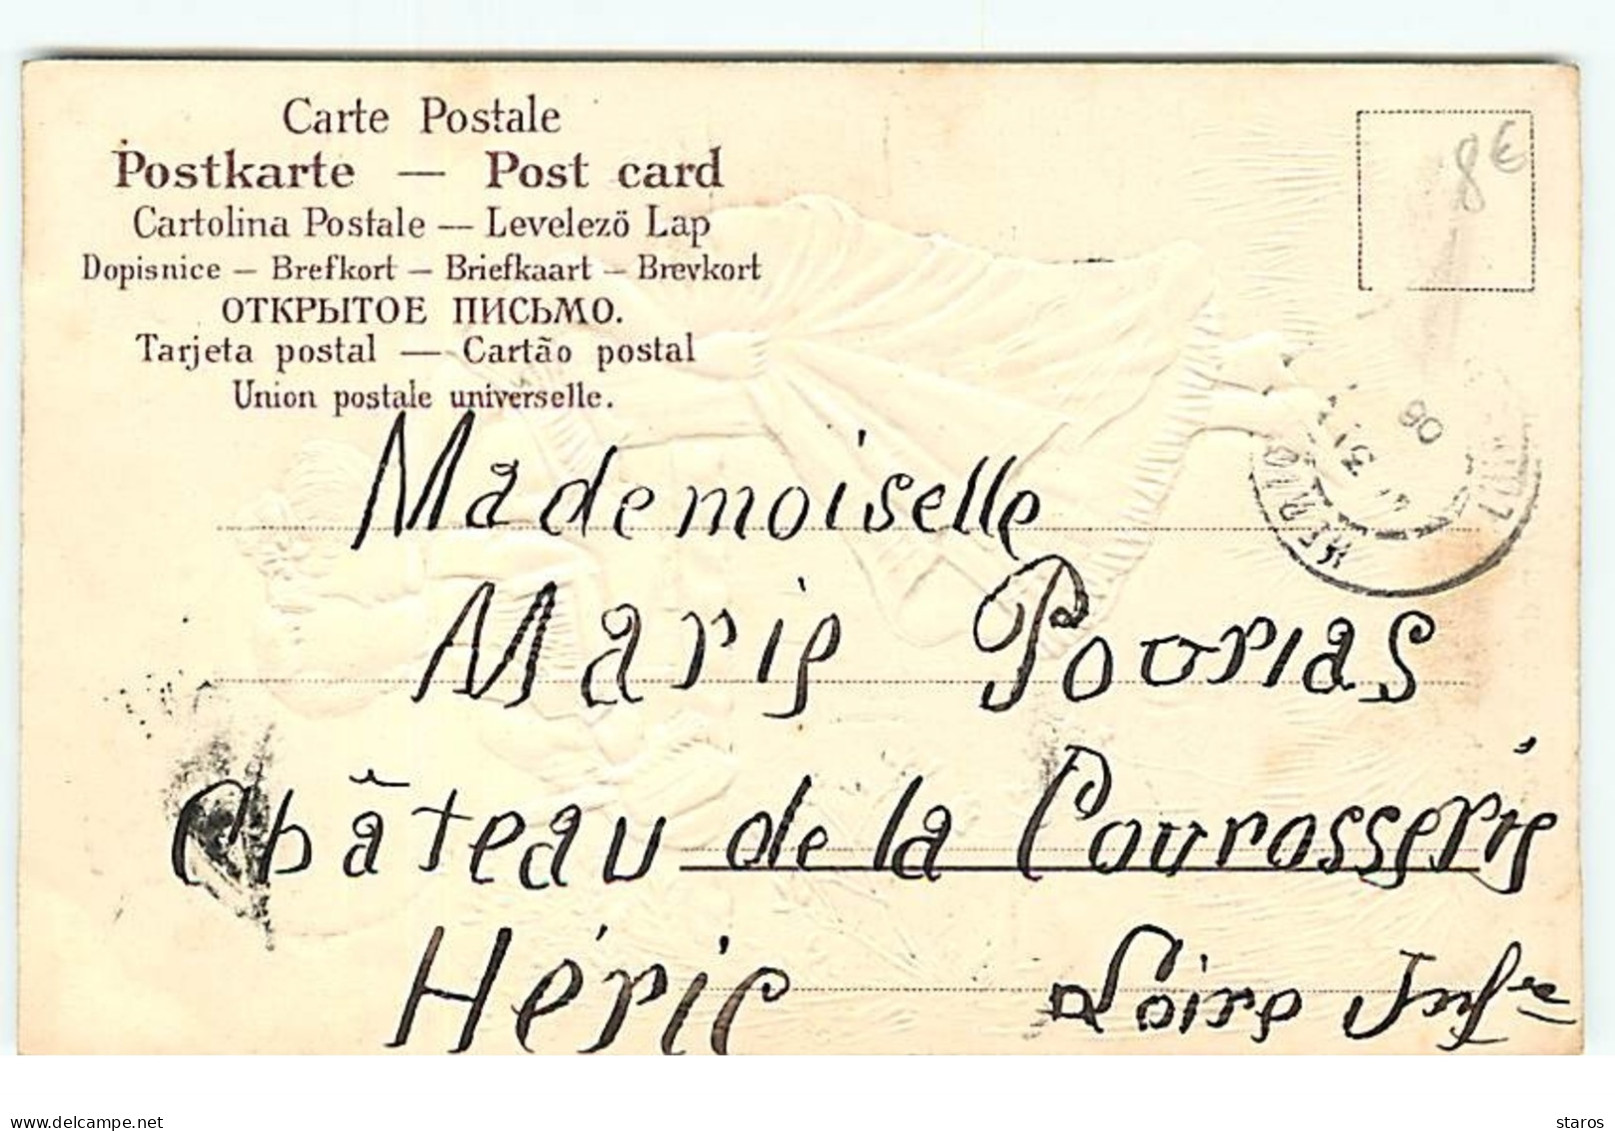 Carte Postale
Postkarte — Post card
Cartolina Postale — Levelező Lap
Dopisnice — Brefkort — Briefkaart — Brevkort
ОТКРЫТОЕ ПИСЬМО.
Tarjeta postal — Cartão postal
Union postale universelle.
8€
HERIC
31
06
Mademoiselle
Marie Pourias
Château de la Courosserie
Héric Loire Infre
delcampe.net
staros